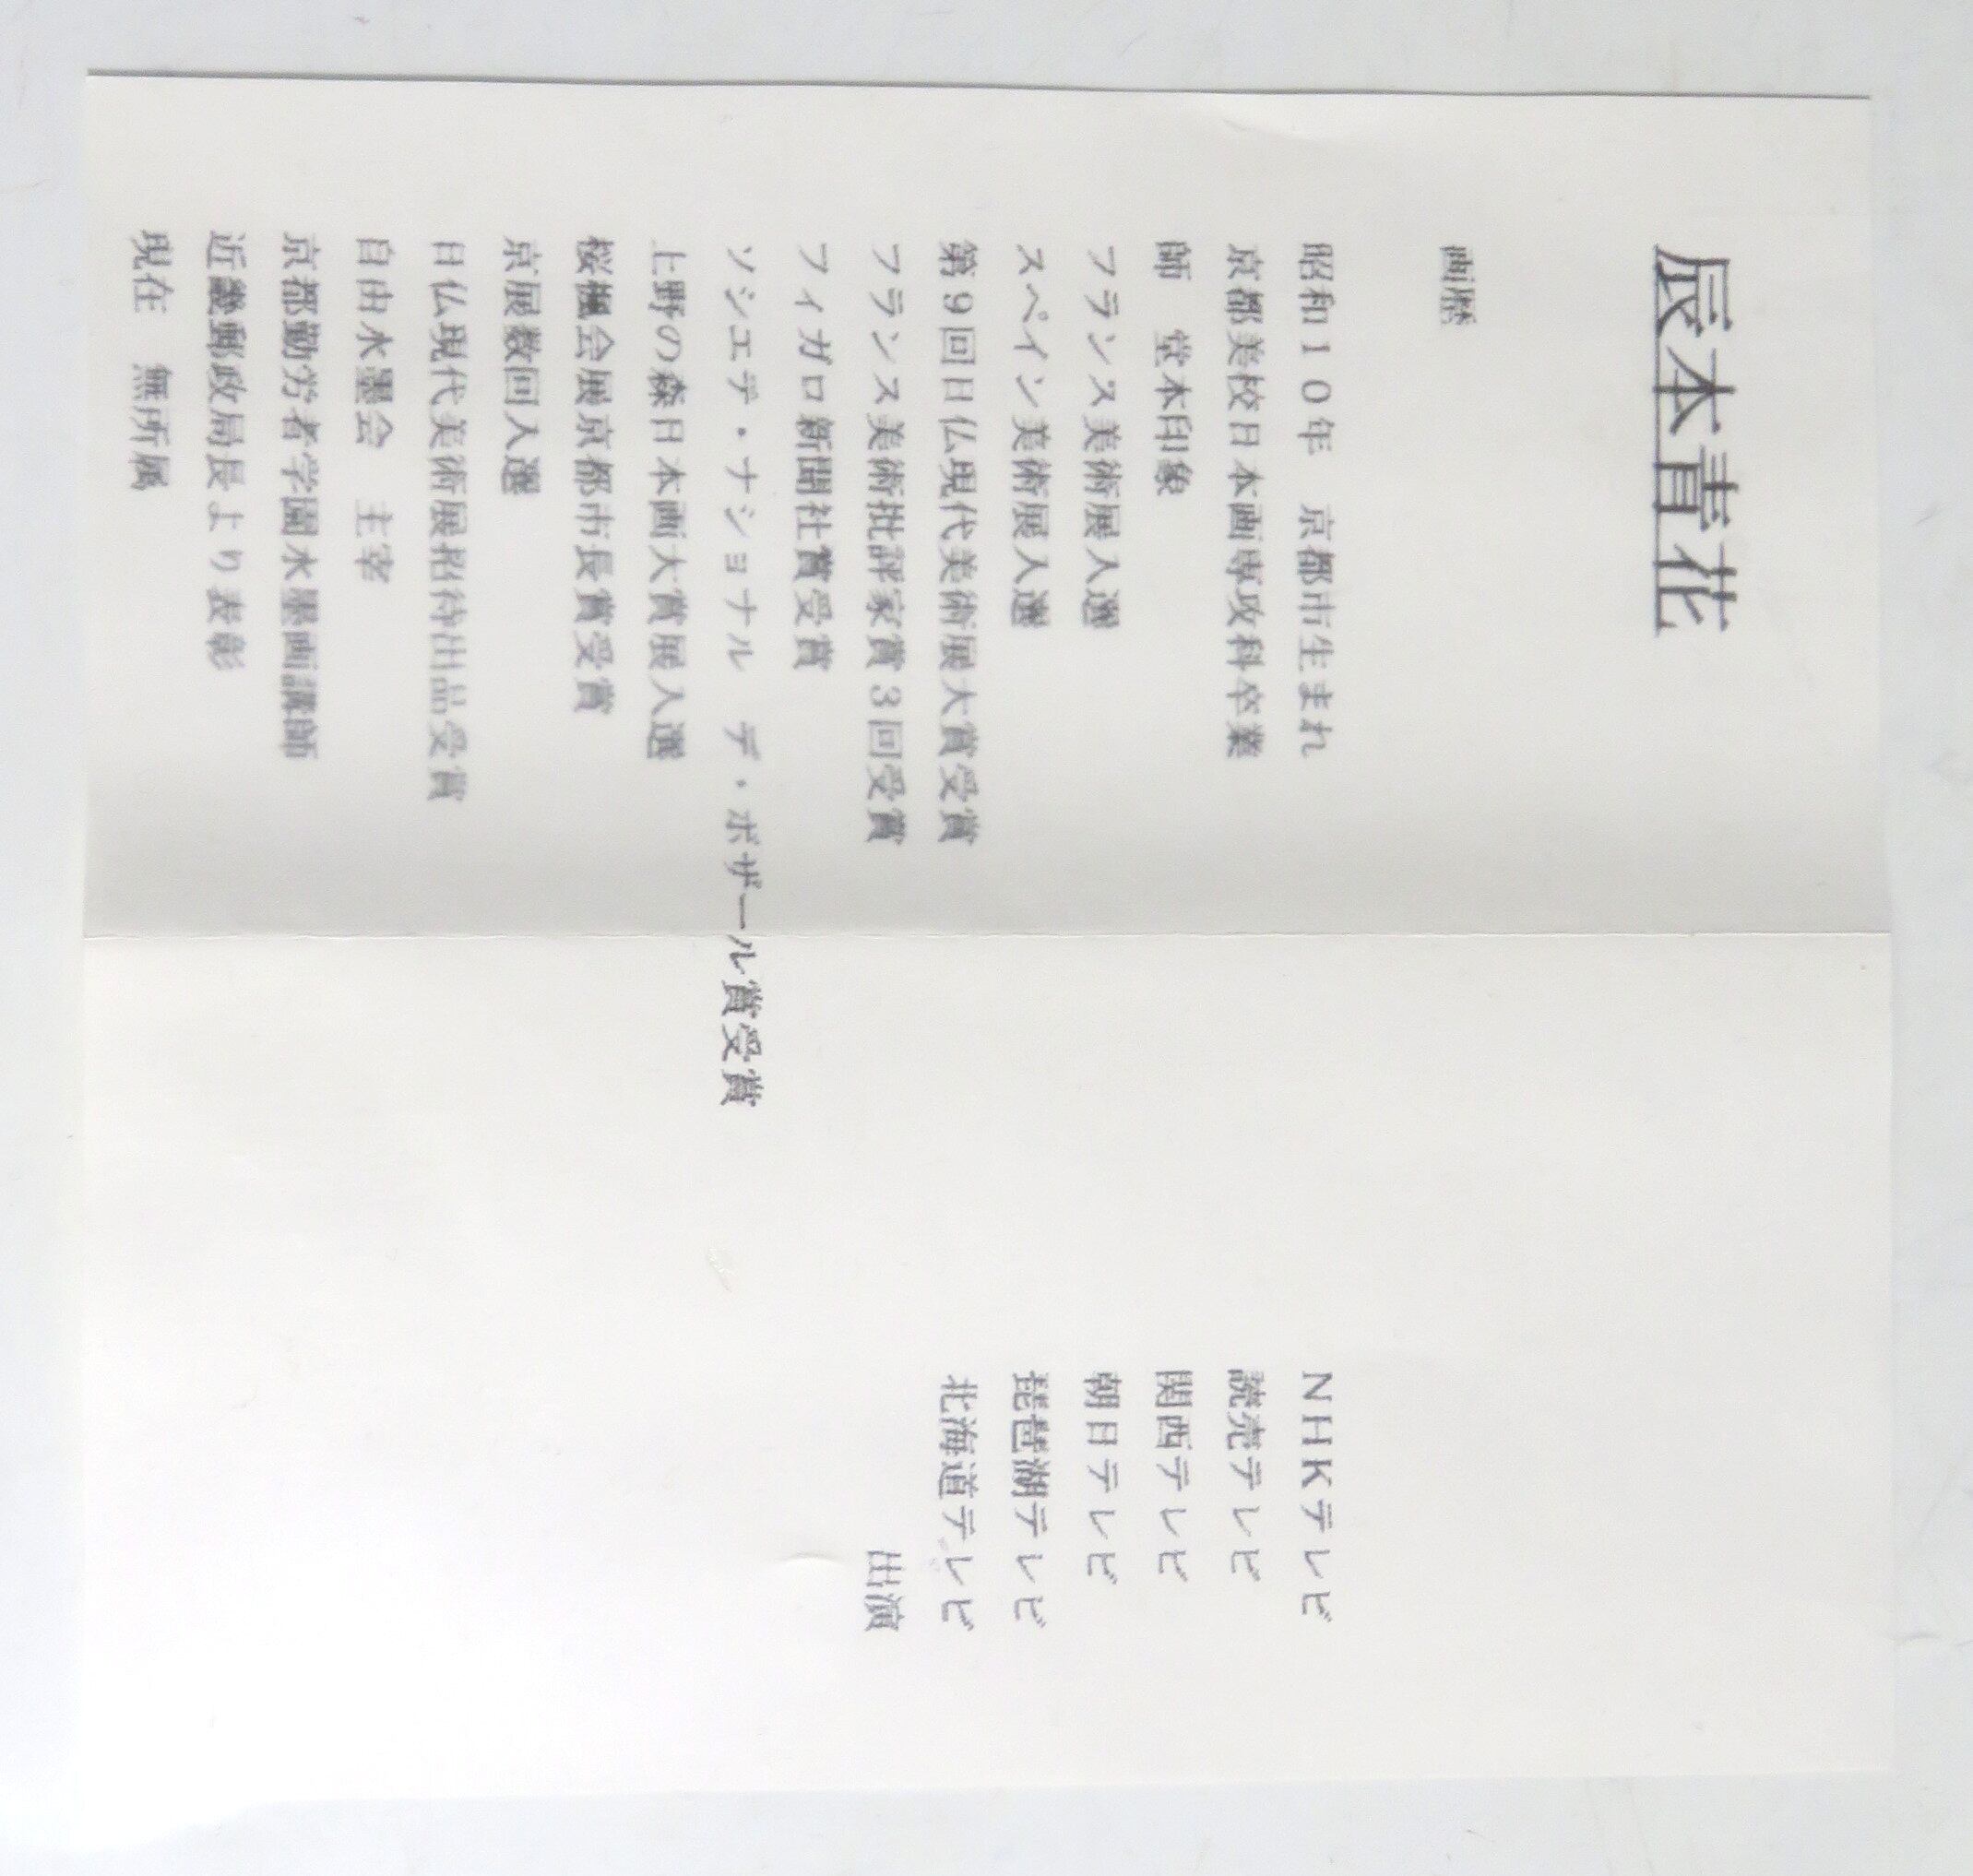 辰本青花
画歴
昭和10年　京都市生まれ
京都美校日本画専攻科卒業
師　堂本印象
フランス美術展入選
スペイン美術展入選
第9回日仏現代美術展大賞受賞
フランス美術批評家賞3回受賞
フィガロ新聞社賞受賞
ソシエテ・ナショナル　デ・ボザール賞受賞
上野の森日本画大賞展入選
桜楓会展京都市長賞受賞
京展数回入選
日仏現代美術展招待出品受賞
自由水墨会　主宰
京都勤労者学園水墨画講師
近畿郵政局長より表彰
現在　無所属
NHKテレビ
読売テレビ
関西テレビ
朝日テレビ
琵琶湖テレビ
北海道テレビ
出演